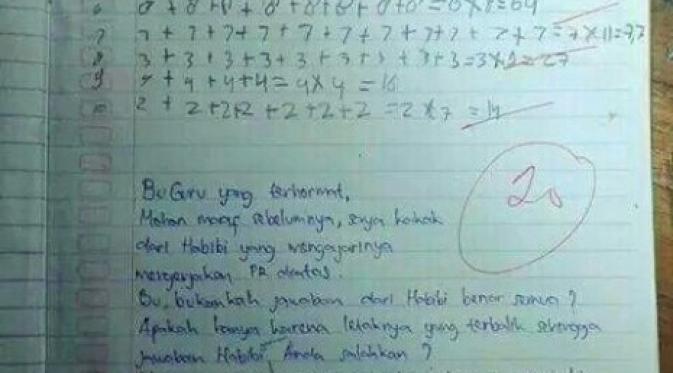 6 8 + 8 + 8 + 8 + 8 + 8 + 8 + 8 = 8 x 8 = 64
7 7 + 7 + 7 + 7 + 7 + 7 + 7 + 7 + 7 + 7 + 7 = 7 x 11 = 77
8 3 + 3 + 3 + 3 + 3 + 3 + 3 + 3 + 3 = 3 x 9 = 27
9 4 + 4 + 4 + 4 = 4 x 4 = 16
10 2 + 2 + 2 + 2 + 2 + 2 + 2 = 2 x 7 = 14
20
Bu Guru yang terhormat,
Mohon maaf sebelumnya, saya kakak
dari Habibi yang mengajarinya
mengerjakan PR diatas.
Bu, bukankah jawaban dari Habibi benar semua ?
Apakah hanya karena letaknya yang terbalik sehingga
jawaban Habibi, Anda salahkan ?